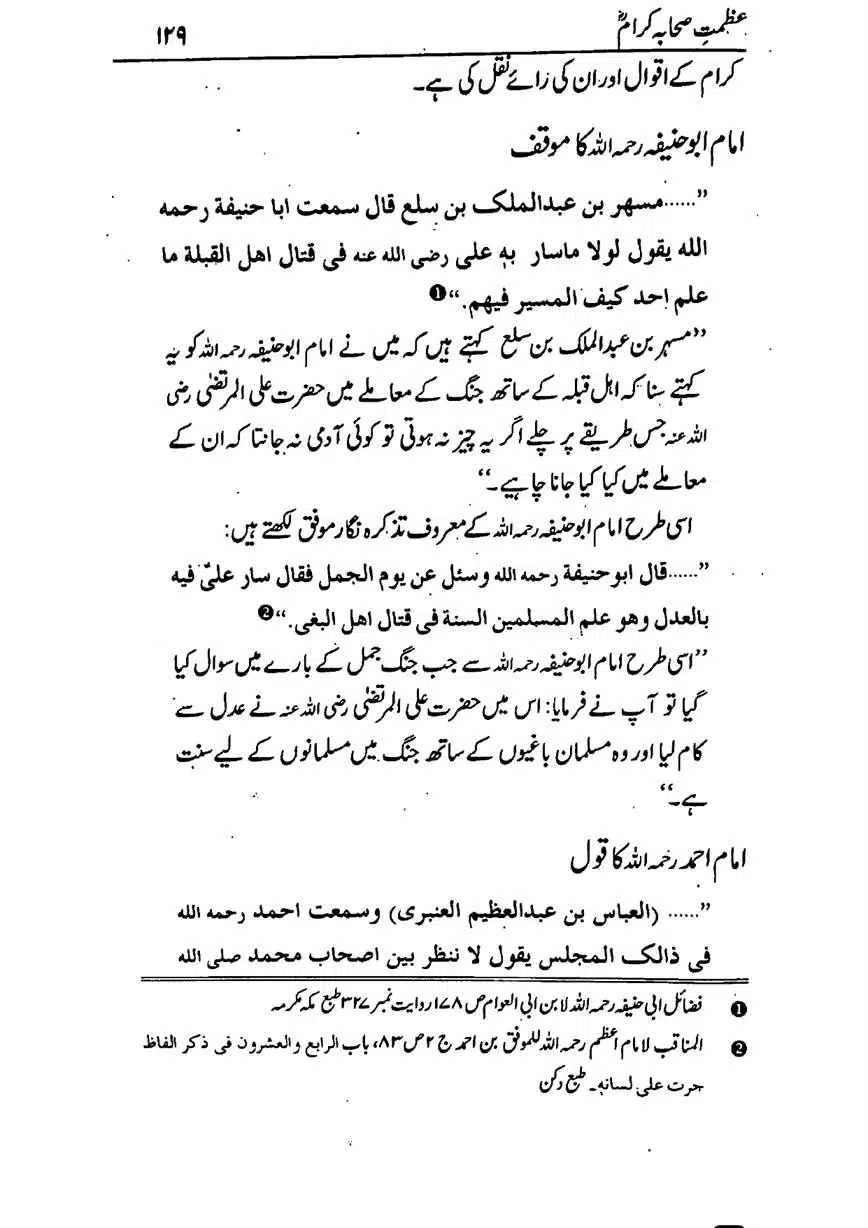 عظمتِ صحابہ کرامؓ ۱۲۹
کرام کے اقوال اور ان کی رائے نقل کی ہے۔
امام ابوحنیفہ رحمہ اللہ کا موقف
”......مسهر بن عبدالملک بن سلع قال سمعت ابا حنیفة رحمه
الله یقول لولا ماسار بهٖ علی رضی الله عنه فی قتال اهل القبلة ما
علم احد کیف المسیر فیهم.“❶
”مسہر بن عبدالملک بن سلع کہتے ہیں کہ میں نے امام ابوحنیفہ رحمہ اللہ کو یہ
کہتے سنا کہ اہل قبلہ کے ساتھ جنگ کے معاملے میں حضرت علی المرتضیٰ رضی
اللہ عنہ جس طریقے پر چلے اگر یہ چیز نہ ہوتی تو کوئی آدمی نہ جانتا کہ ان کے
معاملے میں کیا کیا جانا چاہیے۔“
اسی طرح امام ابوحنیفہ رحمہ اللہ کے معروف تذکرہ نگار موفق لکھتے ہیں:
”......قال ابوحنیفة رحمه الله وسئل عن یوم الجمل فقال سار علیٌ فیه
بالعدل وهو علم المسلمین السنة فی قتال اهل البغی.“❷
”اسی طرح امام ابوحنیفہ رحمہ اللہ سے جب جنگ جمل کے بارے میں سوال کیا
گیا تو آپ نے فرمایا: اس میں حضرت علی المرتضیٰ رضی اللہ عنہ نے عدل سے
کام لیا اور وہ مسلمان باغیوں کے ساتھ جنگ میں مسلمانوں کے لیے سنت
ہے۔“
امام احمد رحمہ اللہ کا قول
”...... (العباس بن عبدالعظیم العنبری) وسمعت احمد رحمه الله
فی ذالک المجلس یقول لا ننظر بین اصحاب محمد صلی الله
❶ فضائل ابی حنیفہ رحمہ اللہ لا بن ابی العوام ص ۱۷۸ روایت نمبر ۳۲۷ طبع مکہ مکرمہ
❷ المناقب لامام اعظم رحمہ اللہ للموفق بن احمد ج ۲ ص ۸۳، باب الرابع والعشرون فی ذکر الفاظ
جرت علی لسانهٖ۔ طبع دکن